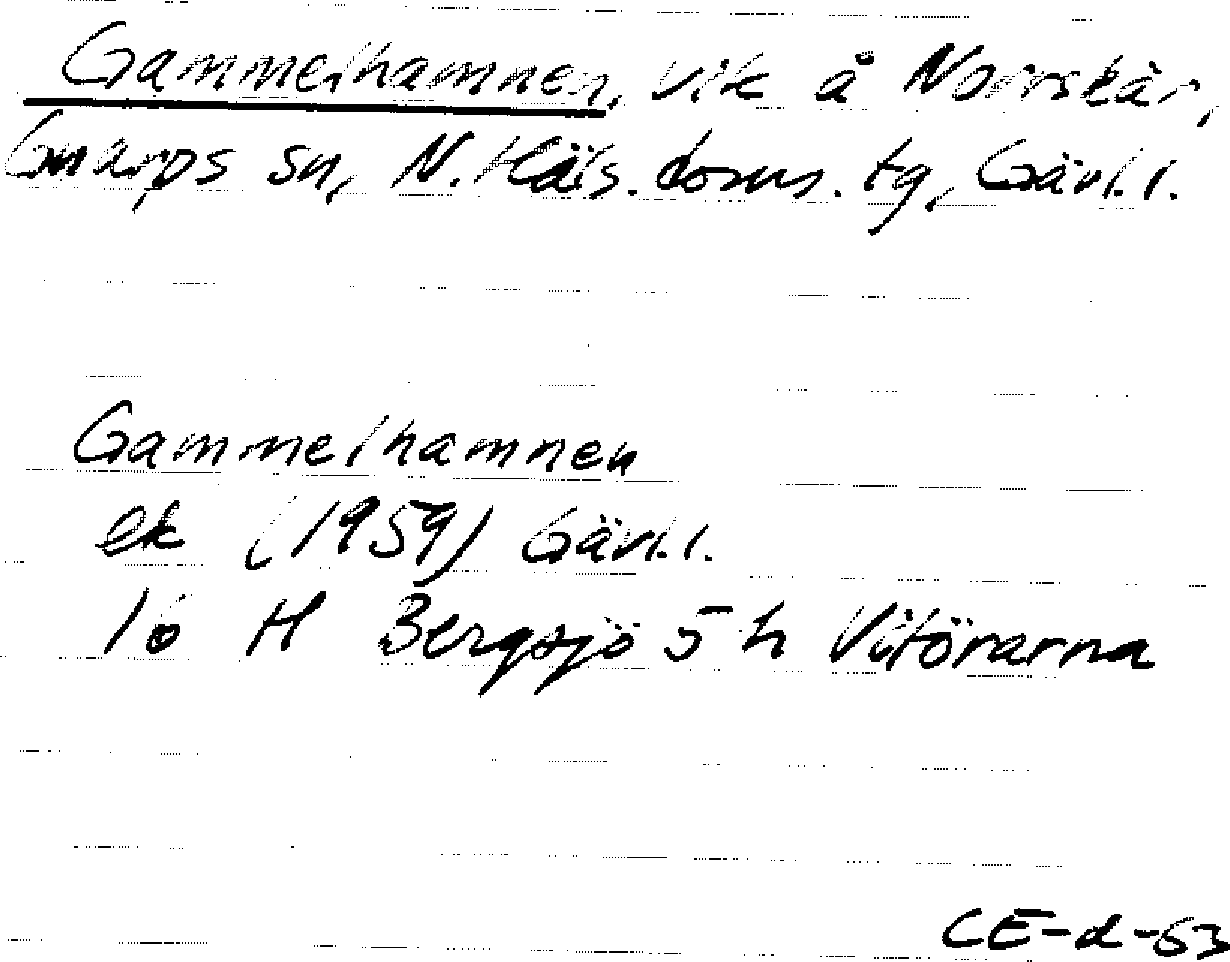 Gammelhamnen, vik å Norrskär,
Gnarps sn, N. Häls. doms. tg, Gävl. l.
Gammelhamnen
ek (1959) Gävl. l.
16 H Bergsjö 5 h Vitörarna
CE-d-63